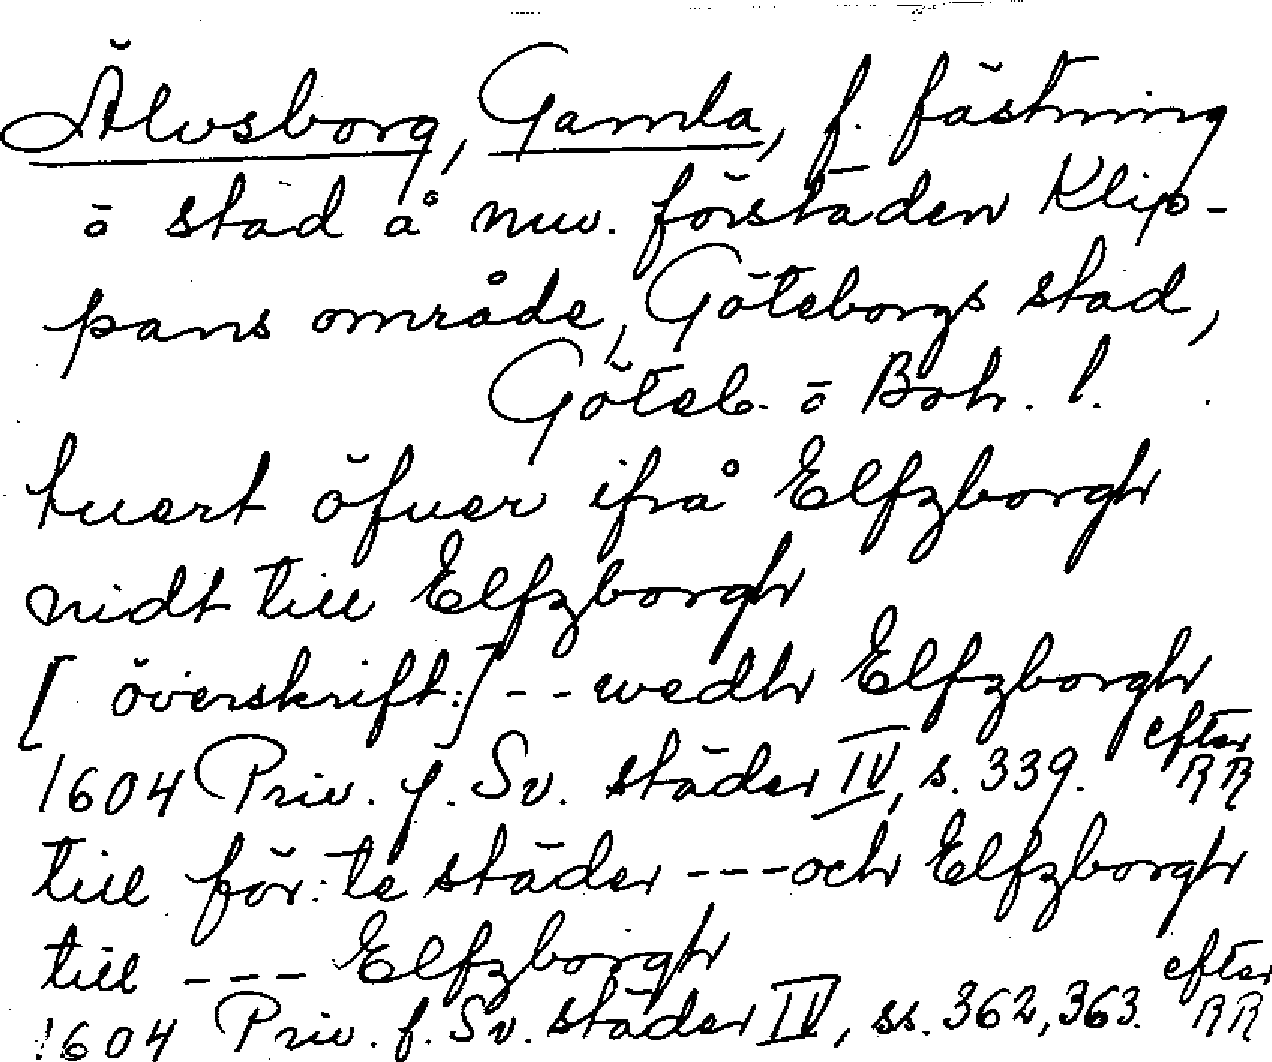 Älvsborg, Gamla, f. fästning
o stad å nuv. förstaden Klip-
pans område, Göteborgs stad,
Göteb. o Boh. l.
tuert öfuer ifrå Elfzborgh
nidt till Elfzborgh
[överskift:] -- wedh Elfzborgh
1604 Priv. f. Sv. städer IV, s. 339. efter RR
till för:te städer --- och Elfzborgh
till --- Elfzborgh
1604 Priv. f. Sv. städer IV, ss. 362, 363. efter RR